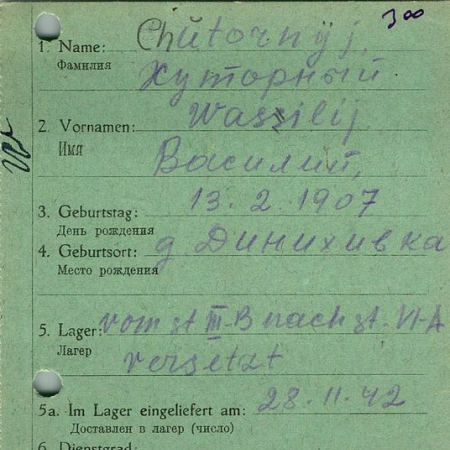 300
1. Name: Chütornÿj,
Фамилия Хуторный
2. Vornamen: Wassilij
Имя Василий,
3. Geburtstag: 13.2.1907
День рождения
4. Geburtsort: д Динихивка
Место рождения
5. Lager: vom st III-B nach st. VI-A
Лагер versetzt
5a. Im Lager eingeliefert am: 28.11.42
Доставлен в лагер (число)
6. Dienstgrad: